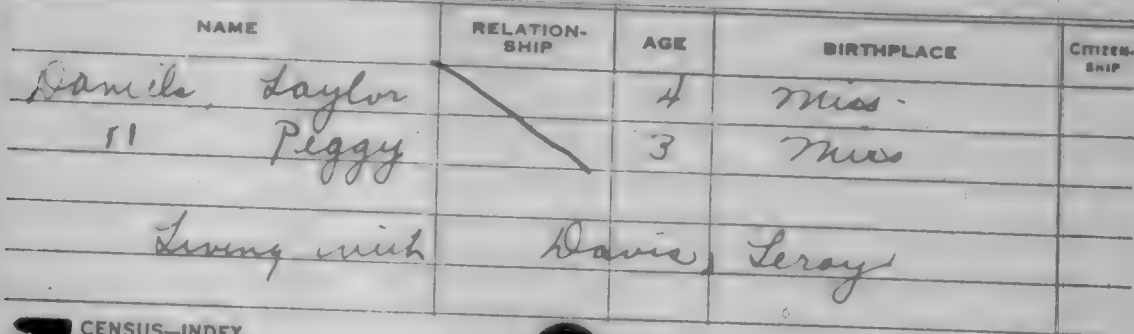 NAME RELATION-SHIP AGE BIRTHPLACE CITIZEN-SHIP
Daniels, Taylor 4 Miss.
" Peggy 3 Miss
Living with Davis, Leroy
CENSUS—INDEX